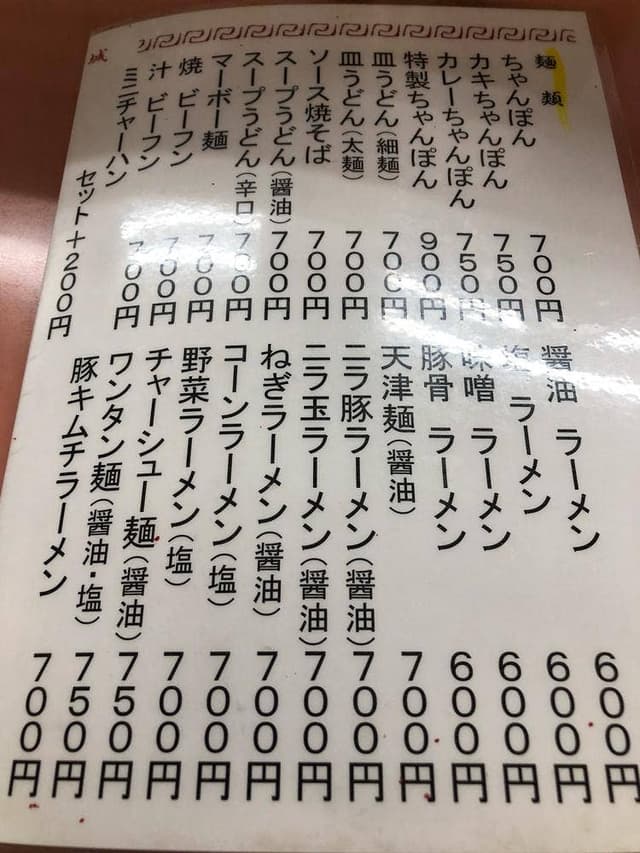 麺類
ちゃんぽん 700円
カキちゃんぽん 750円
カレーちゃんぽん 750円
特製ちゃんぽん 900円
皿うどん(細麺) 700円
皿うどん(太麺) 700円
ソース焼そば 700円
スープうどん(醤油) 700円
スープうどん(辛口) 700円
マーボー麺 700円
焼 ビーフン 700円
汁 ビーフン 700円
ミニチャーハン
セット+200円
醤油 ラーメン 600円
塩 ラーメン 600円
味噌 ラーメン 600円
豚骨 ラーメン 600円
天津麺(醤油) 700円
ニラ豚ラーメン(醤油) 700円
ニラ玉ラーメン(醤油) 700円
ねぎラーメン(醤油) 700円
コーンラーメン(塩) 700円
野菜ラーメン(塩) 700円
チャーシュー麺(醤油) 750円
ワンタン麺(醤油・塩) 750円
豚キムチラーメン 700円
城